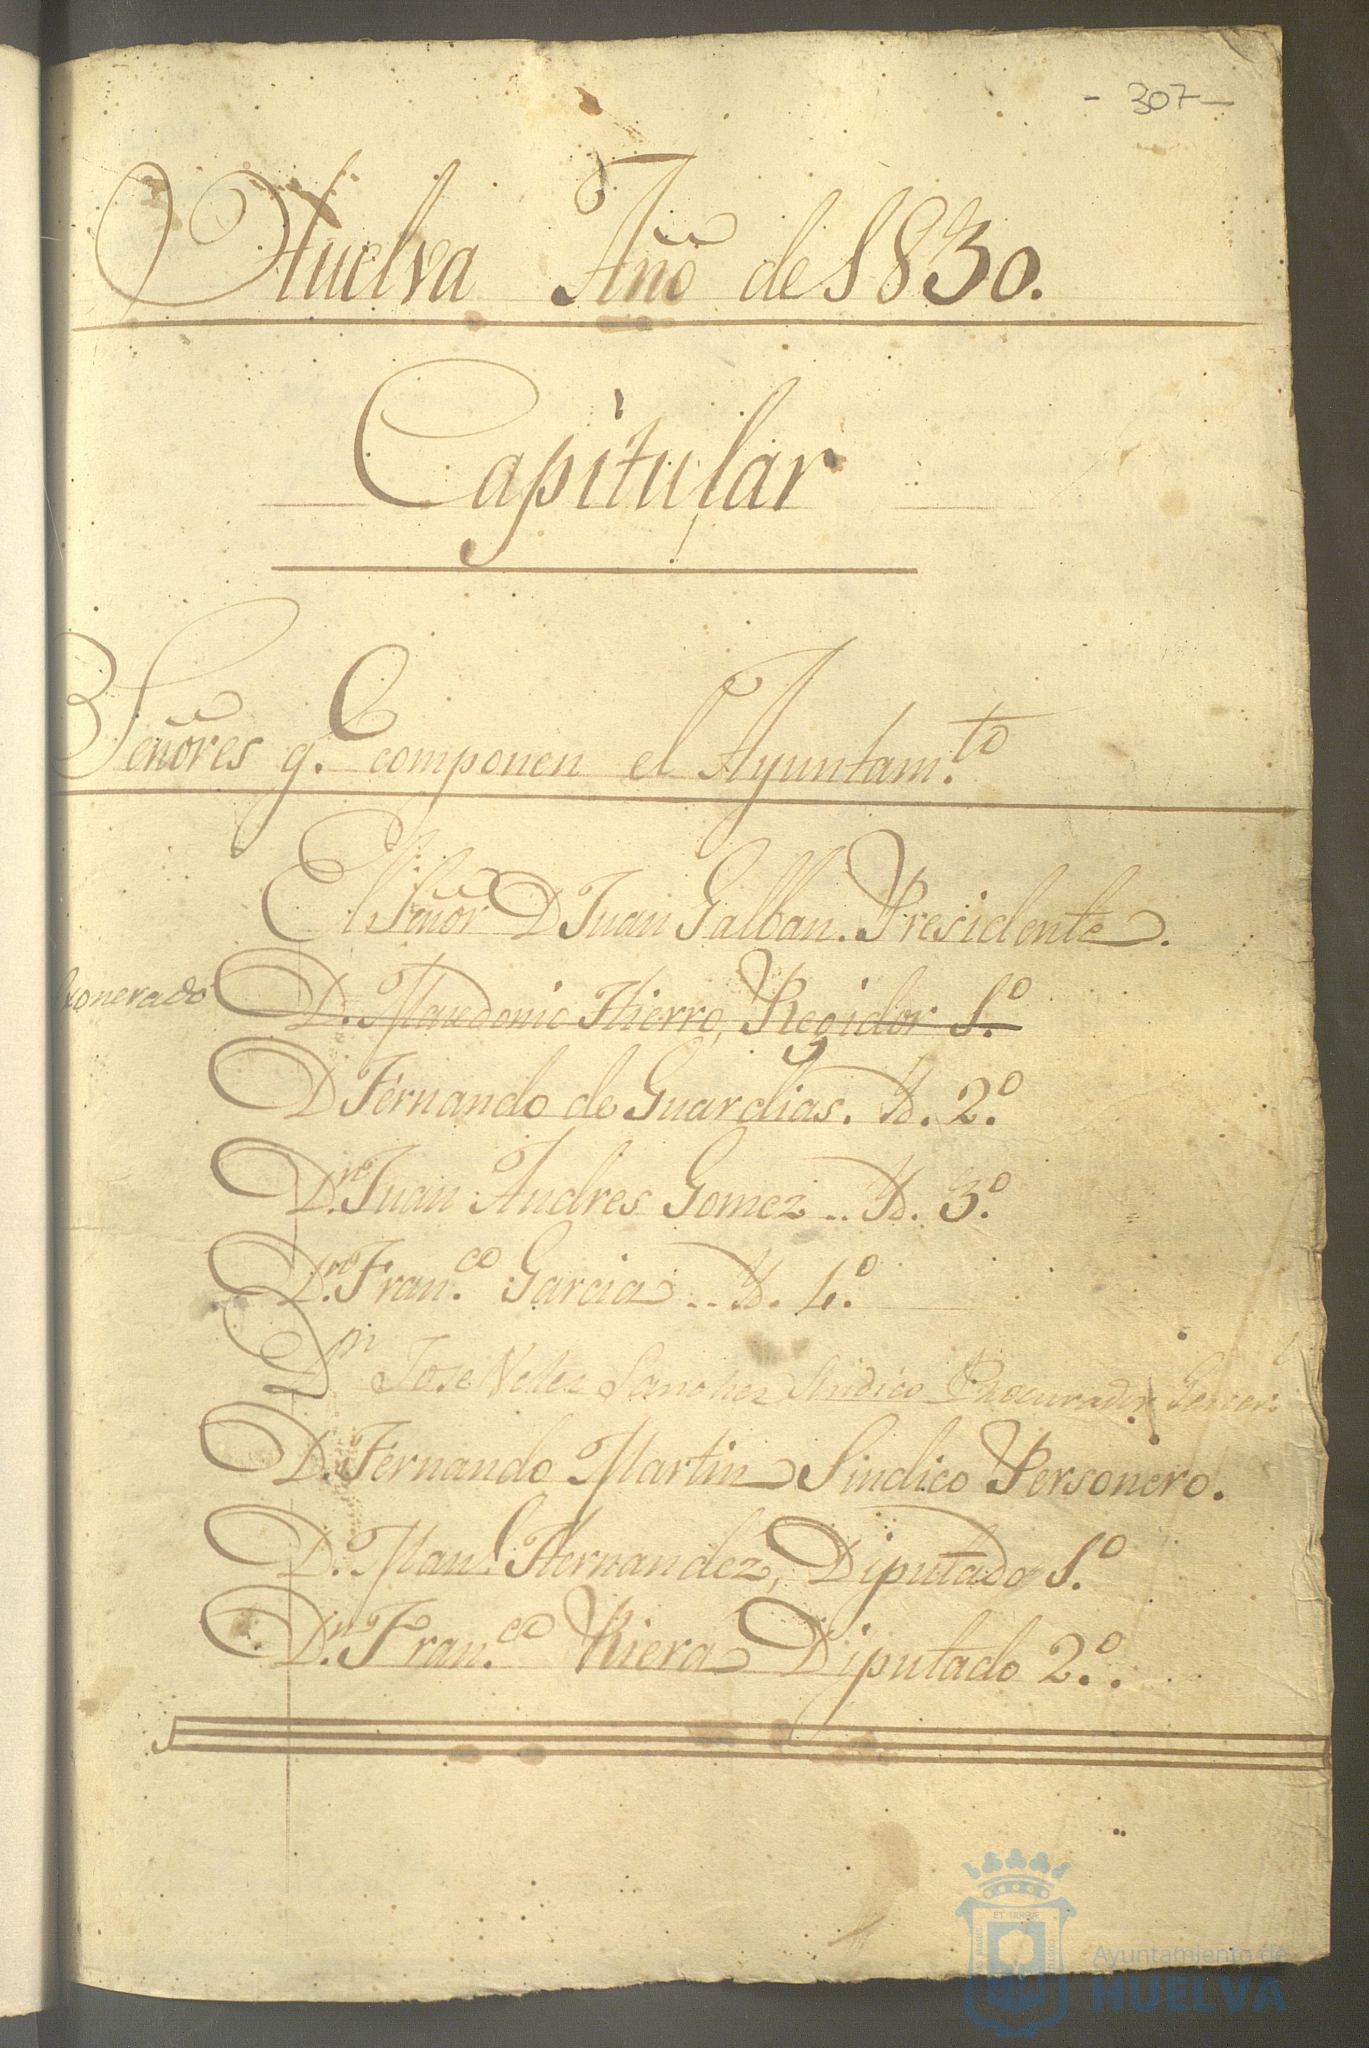 - 307 -
Huelva Año de 1830.
Capitular
Señores q.e componen el Ayuntam.to
El Señor D Juan Galban. Presidente.
Exonerado D. Macedonio Hierro, Regidor 1.º
D Fernando de Guardias. Yd. 2.º
D.n Juan Andres Gomez .. Yd. 3.º
D.n Fran.co Garcia .. Yd. 4.º
Dn Jose Velez Sanchez Sindico Procurador General
D. Fernando Martin Sindico Personero.
D. Man.l Hernandez, Diputado 1.º
D.n Fran.co Riera Diputado 2.º.
Ayuntamiento de
HUELVA